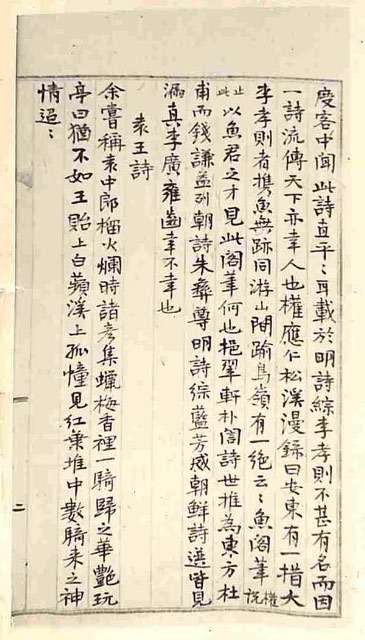 慶客中聞此詩直平〻耳載於明詩綜李孝則不甚有名而因
一詩流傳天下亦幸人也權應仁松溪漫錄曰安東有一措大
李孝則者携魚無跡同游山間踰鳥嶺有一絕云〻魚閣筆權說
止此以魚君之才見此閣筆何也挹翠軒朴誾詩世推為東方杜
甫而錢謙益列朝詩朱彝尊明詩綜藍芳威朝鮮詩選皆見
漏真李廣雍齒幸不幸也
袁王詩
余嘗稱袁中郎榴火爛時諸彥集蠟梅香裡一騎歸之華艷玩
亭曰猶不如王貽上白蘋溪上孤憧見紅葉堆中數騎来之神
情迢〻
二